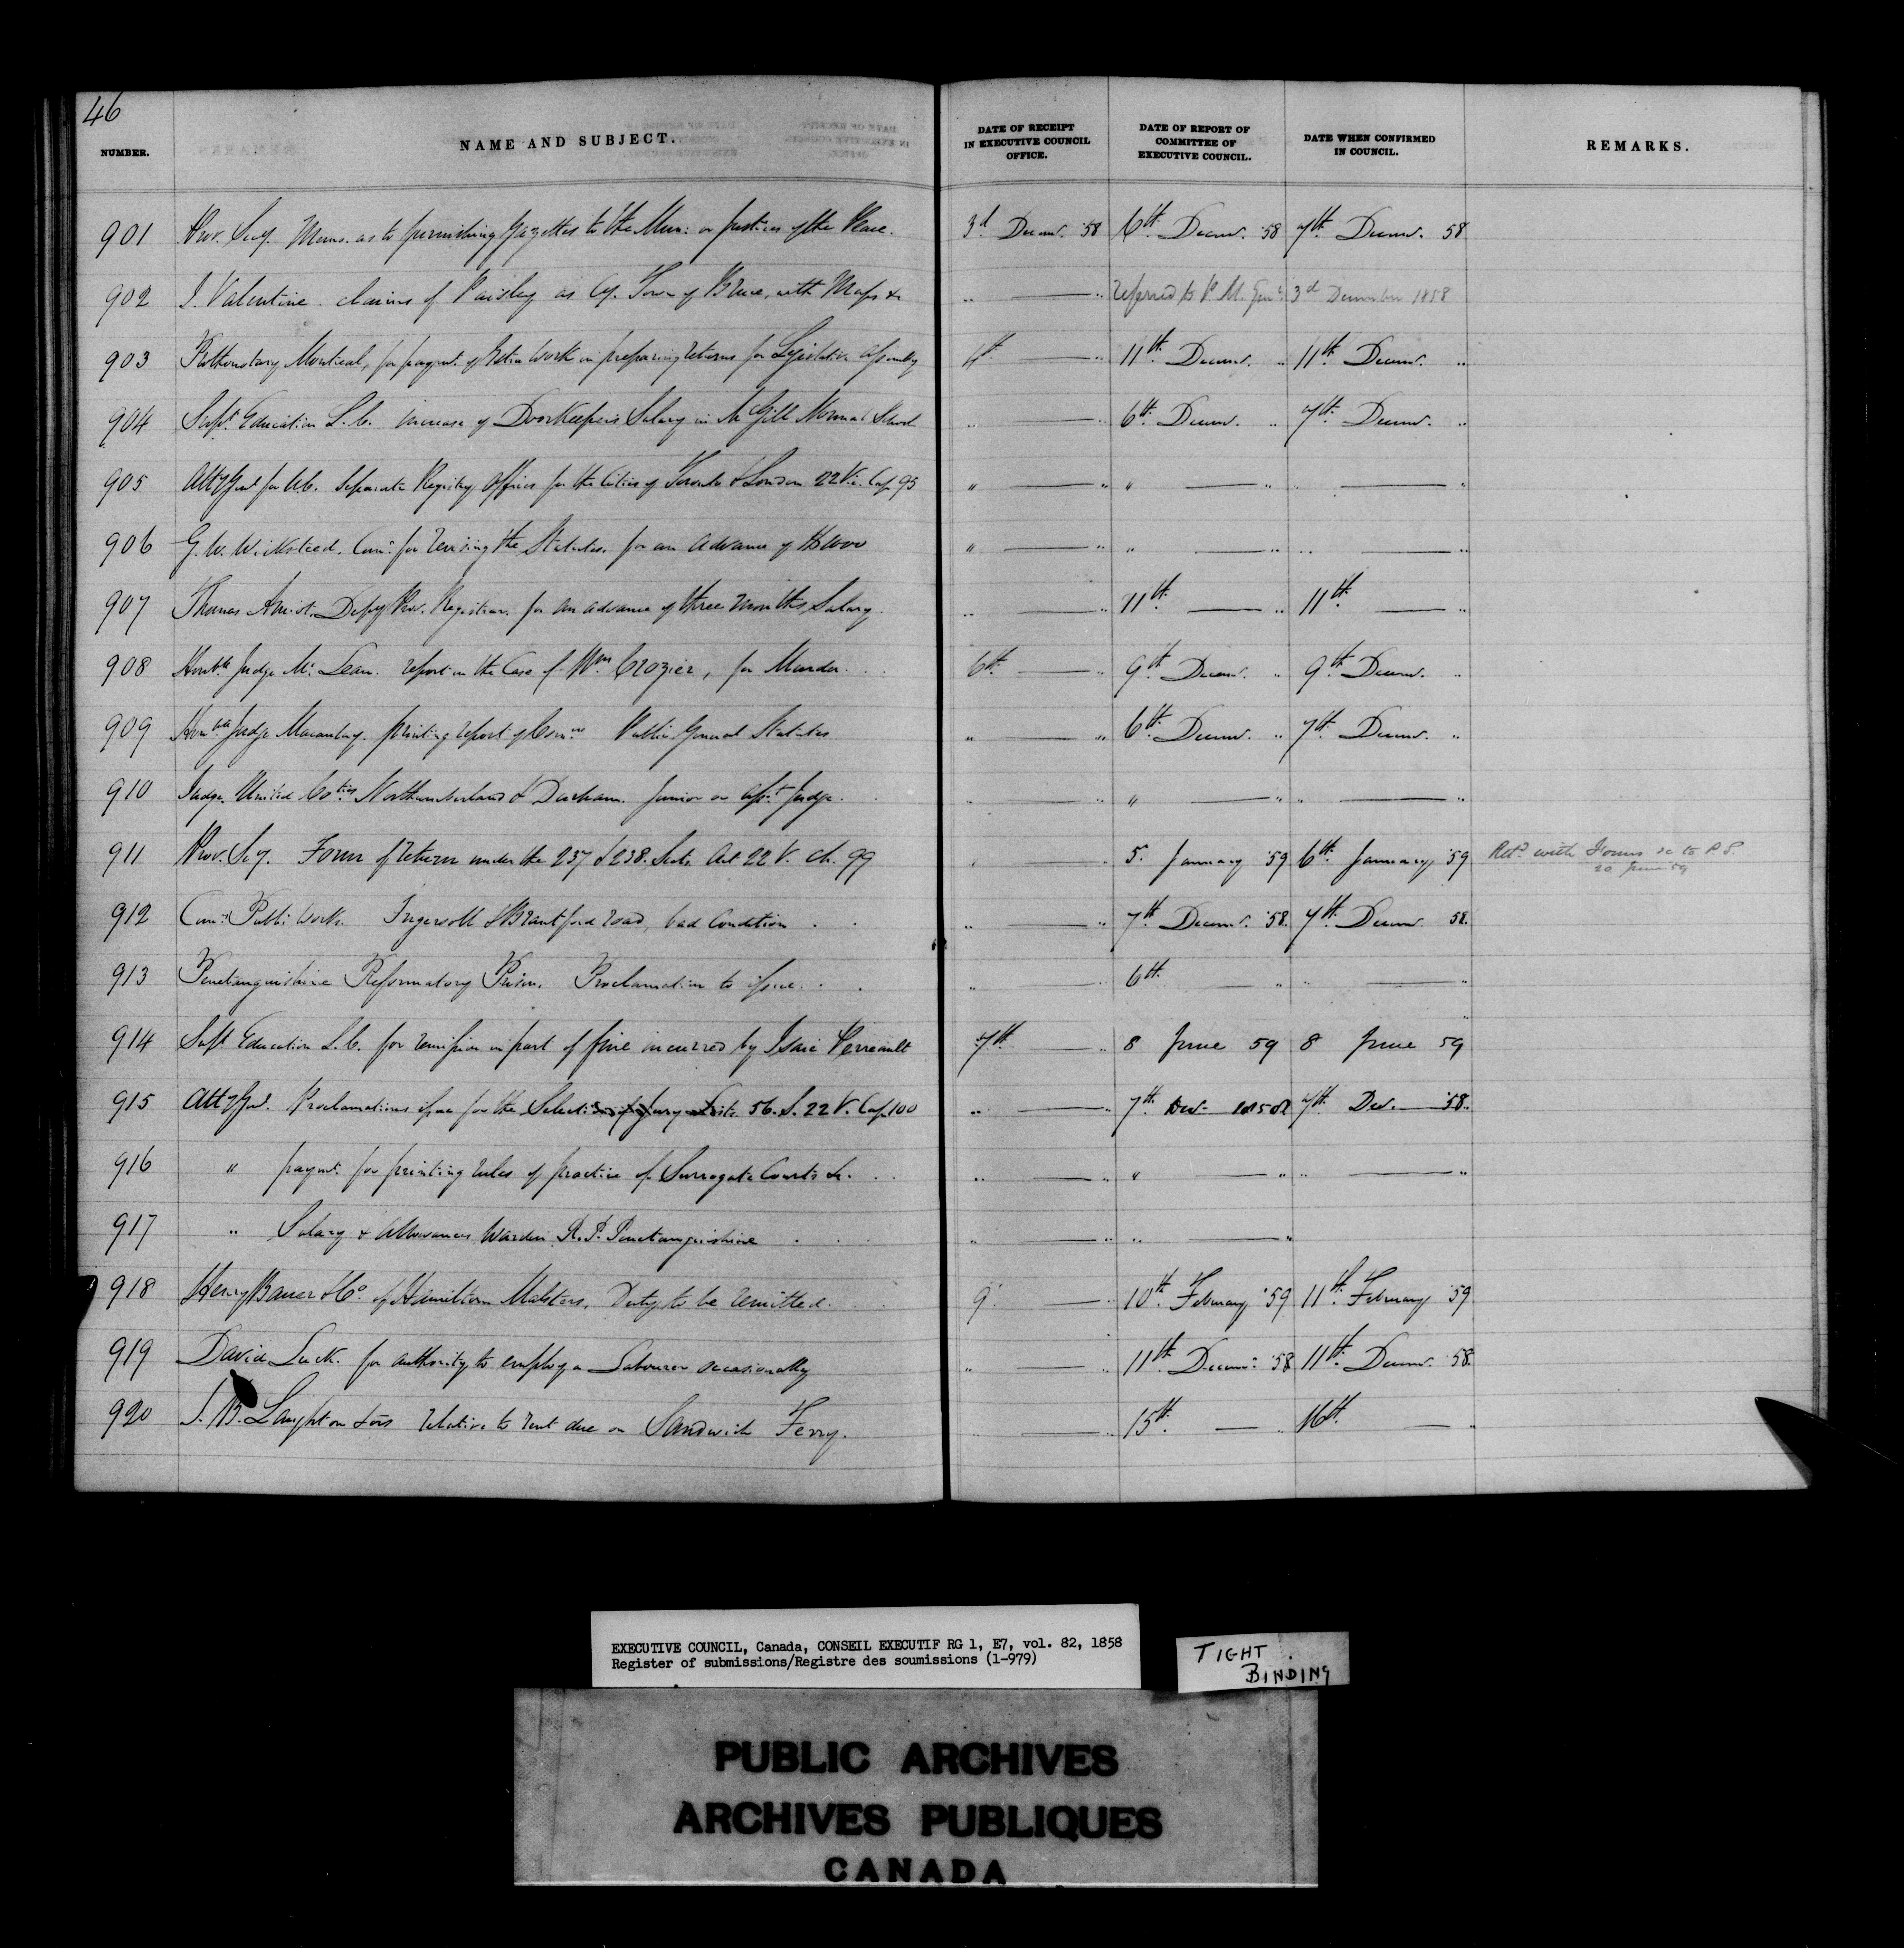 46
NUMBER. NAME AND SUBJECT. DATE OF RECEIPT IN EXECUTIVE COUNCIL OFFICE. DATE OF REPORT OF COMMITTEE OF EXECUTIVE COUNCIL. DATE WHEN CONFIRMED IN COUNCIL. REMARKS.
901 Prov. Secy. Memo. as to furnishing Gazettes to the Mun: or Justices of the Peace. 3d Decemr. '58 6th Decemr. '58 7th Decemr. 58
902 J. Valentine claims of Paisley as Co. Town of Bruce, with Maps &c " — " referred to P. M. Genl. 3d December 1858
903 Prothonotary Montreal, for paymt. of Extra work in preparing returns for Legislative Assembly 4th — " 11th Decemr. " 11th Decemr. "
904 Supt. Education L.C. increase of Doorkeepers Salary in McGill Normal School " — " 6th Decemr. " 7th Decemr. "
905 Atty Genl for U.C. Separate Registry Offices for the Cities of Toronto & London 22 Vic. Cap 95 " — " " — " " — "
906 G. W. Wicksteed. Comr. for revising the Statutes. for an advance of " — " " — " " — "
907 Thomas Amiot. Depy Prov. Registrar. for an advance of three months Salary " — " 11th — " 11th — "
908 Honble Judge Mc.Lean. report in the Case of Wm Crozier, for Murder. 6th — " 9th Decemr. " 9th Decemr. "
909 Honble Judge Macaulay. printing report of Comrs Public General Statutes " — " 6th Decemr. " 7th Decemr. "
910 Judge. United Coties Northumberland & Durham. Junior or Asst. Judge. " — " " — " " — "
911 Prov. Secy. Form of return under the 237 & 238. Sects. Act 22 V. Ch. 99 " — " 5. January '59 6th January '59 Retd with Forms &c to P.S. 20 June 59
912 Comr. Public Works. Ingersoll & Brantford road, bad Condition " — " 7th Decemr. '58. 7th Decemr. 58.
913 Penetanguishine Reformatory Prison. Proclamation to issue. " — " 6th — " " — "
914 Supt Education L.C. for remission in part of fine incurred by Isaie Perreault 7th — " 8 June 59 8 June 59
915 Atty Genl. Proclamations issue for the Selection of Jury Lists. 56. S. 22 V. Cap 100 " — " 7th Decr 1858 7th Dec. — '58.
916 " paymt. for printing rules of practice of Surrogate Courts &c. " — " " — " " — "
917 " Salary & allowances Warden R.P. Penetanguishine " — " " — "
918 Henry Bauer & Co. of Hamilton Malsters. Duty to be remitted. 9 — " 10th February '59 11th February '59
919 David Luck. for authority to employ a Labourer occasionally " — " 11th Decemr. '58 11th Decemr. '58.
920 J. B. Laughton & ors relative to rent due on Sandwich Ferry. " — " 15th — " 16th — "
EXECUTIVE COUNCIL, Canada, CONSEIL EXECUTIF RG 1, E7, vol. 82, 1858
Register of submissions/Registre des soumissions (1-979)
TIGHT
BINDING
PUBLIC ARCHIVES
ARCHIVES PUBLIQUES
CANADA